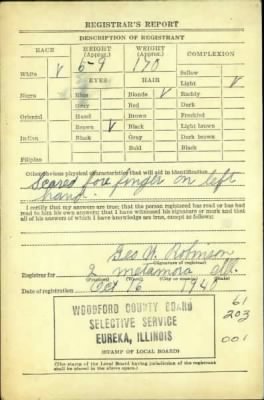 REGISTRAR'S REPORT
DESCRIPTION OF REGISTRANT
RACE HEIGHT (Approx.) WEIGHT (Approx.) COMPLEXION
5-9 170
Sallow
White ✓ EYES HAIR Light ✓
Negro Blue Blonde ✓ Ruddy
Gray Red Dark
Oriental Hazel Brown Freckled
Brown ✓ Black Light brown
Indian Black Gray Dark brown
Bald Black
Filipino
Other obvious physical characteristics that will aid in identification
Scares fore finger on left
hand.
I certify that my answers are true; that the person registered has read or has had
read to him his own answers; that I have witnessed his signature or mark and that
all of his answers of which I have knowledge are true, except as follows:
Geo W. Robinson
(Signature of registrar)
Registrar for 2 metamora Ill.
(Precinct) (City or county) (State)
Date of registration Oct 16 1940
WOODFORD COUNTY BOARD
SELECTIVE SERVICE
EUREKA, ILLINOIS
61
203
001
(STAMP OF LOCAL BOARD)
(The stamp of the Local Board having jurisdiction of the registrant
shall be placed in the above space.)